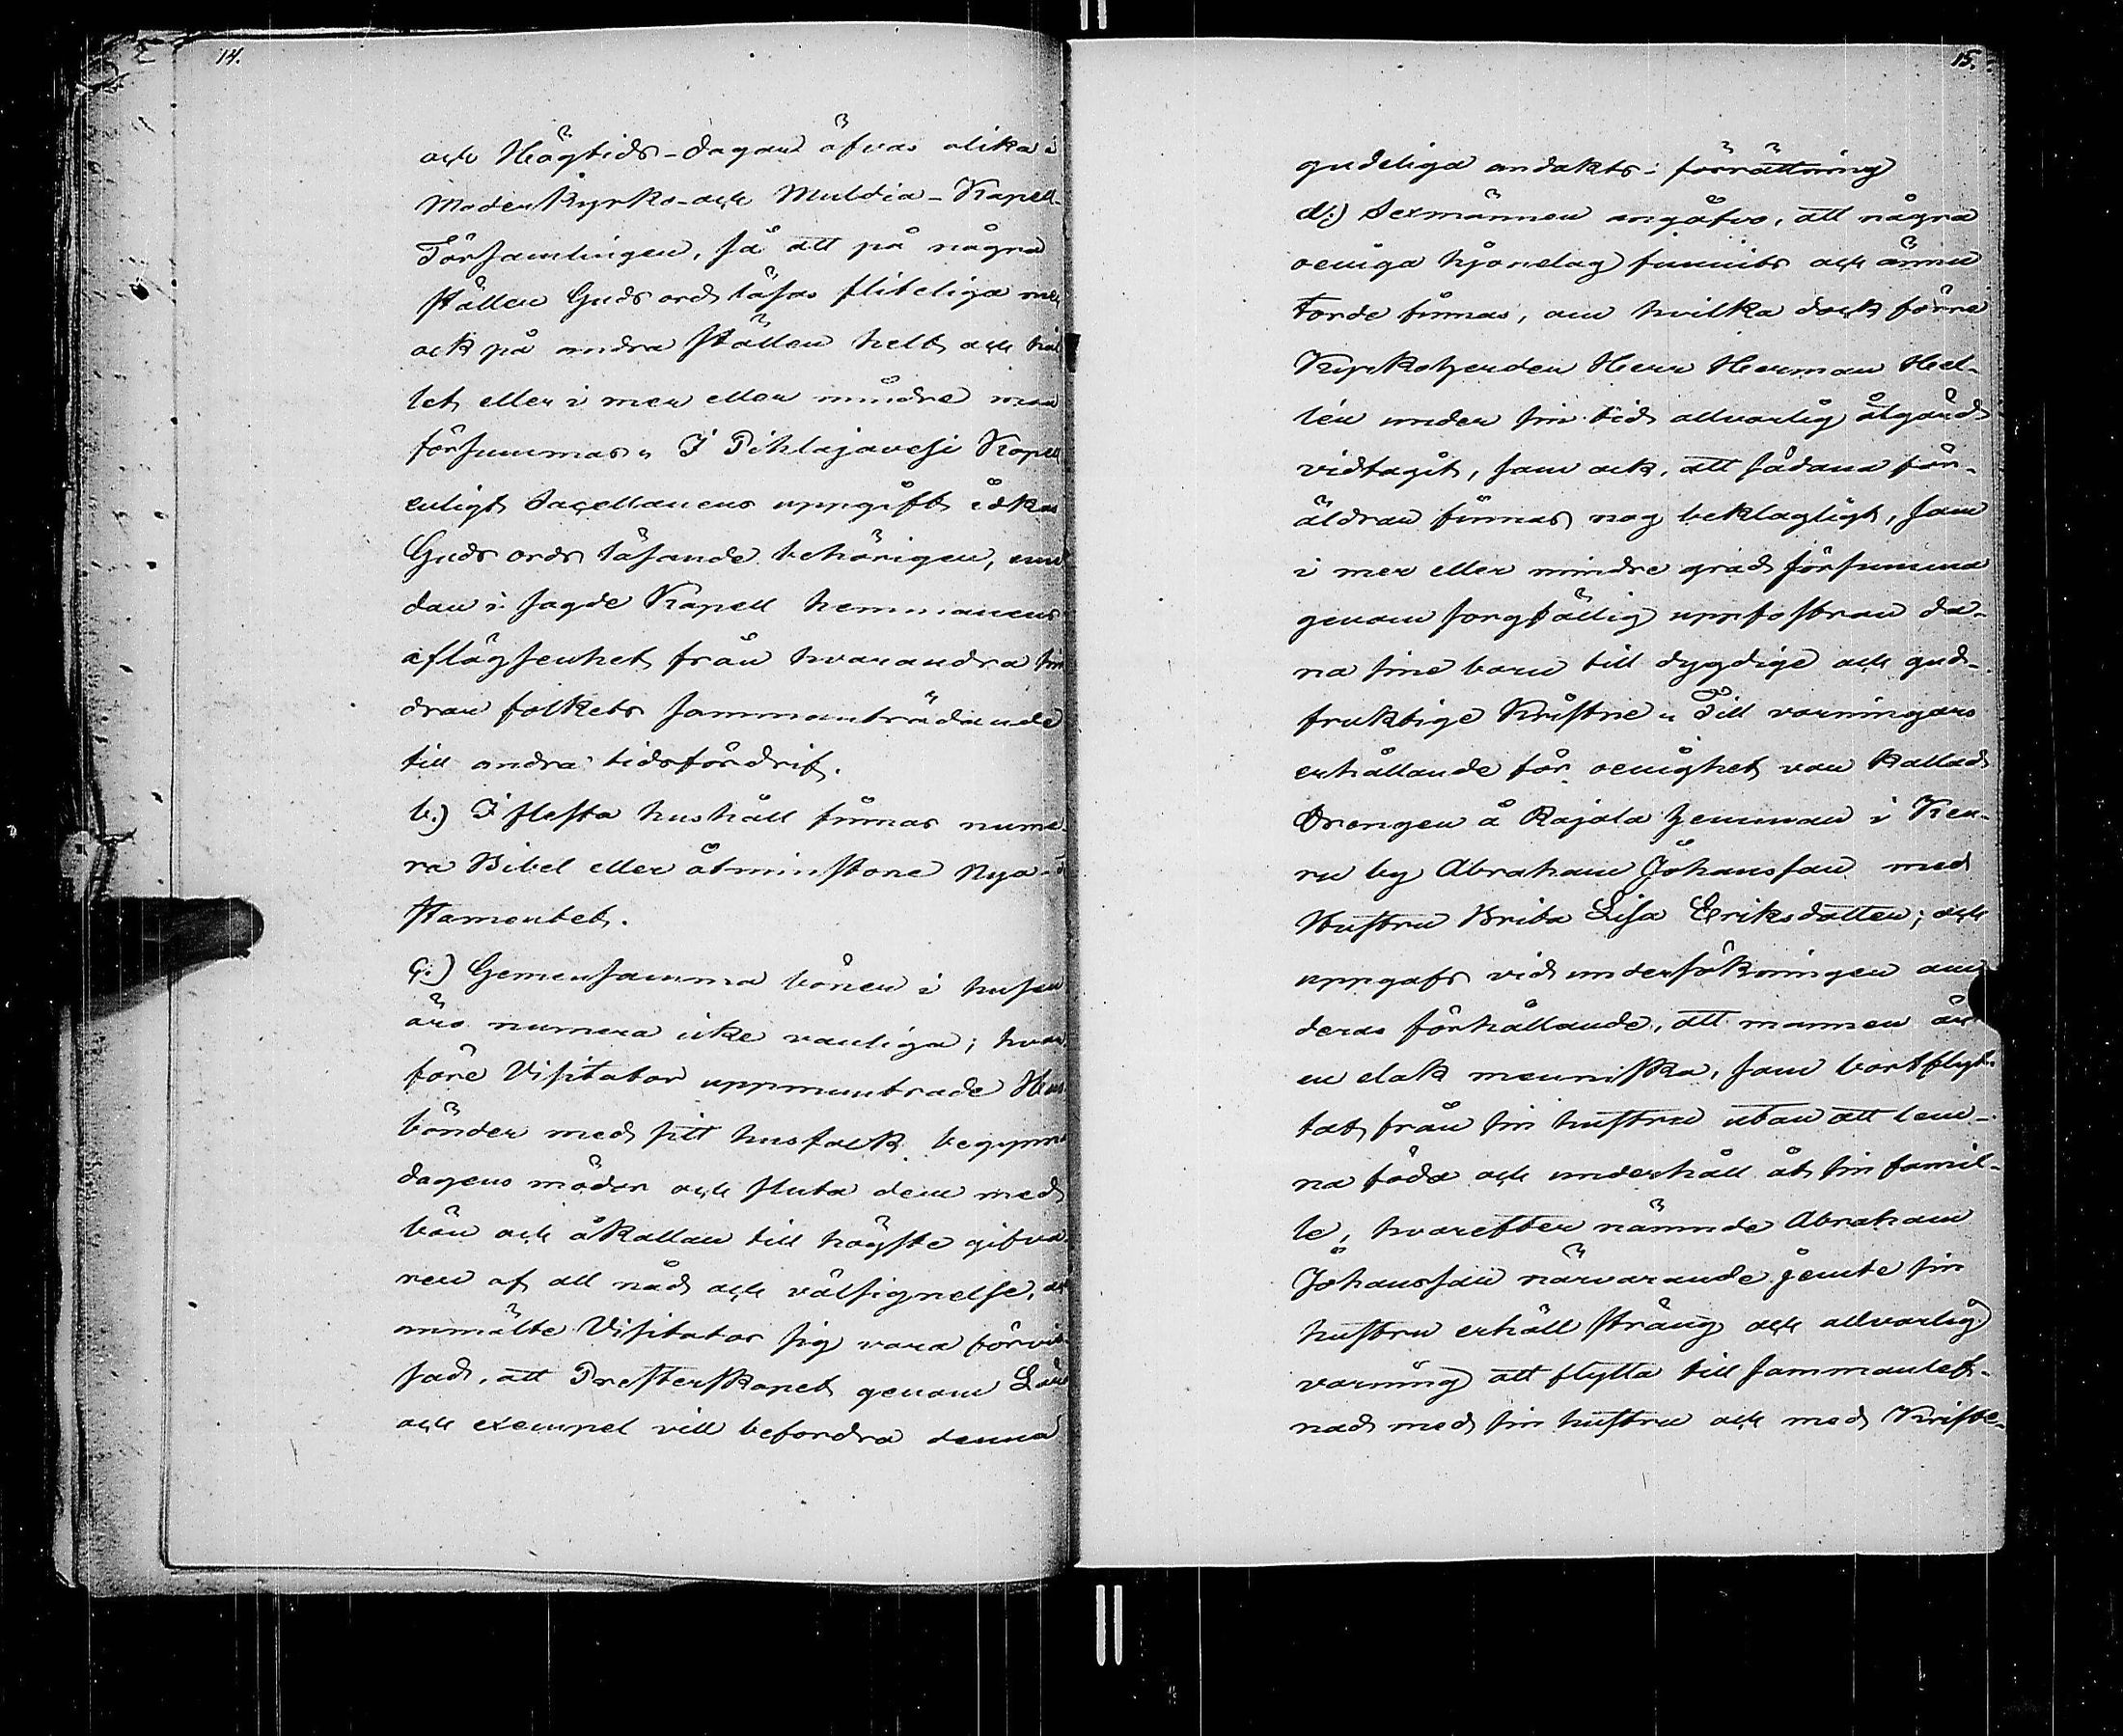 14.
och Högtids-dagar öfvas olika i
Moderkyrko- och Multia-Kapell-
Församlingen, så att på några
ställen Guds ord läsas fliteliga men
ock på andra ställen helt och hål
let eller i mer eller mindre mon
försummas. I Pihlajavesi Kapell
enligt Sacellanens uppgift idkas
Guds ords läsande behörigen, em
dan i sagde Kapell hemmanens
aflägsenhet från hvarandra hin
drar folkets sammanträdande
till andra tidsfördrif.
b.) I flesta hushåll finnas nume
ra Bibel eller åtminstone Nya-
stamentet.
c.) Gemensamma böner i husen
äro numera icke vanliga; hvar
före Visitator uppmuntrade Hus
bönder med sitt husfolk begynna
dagens mödor och sluta dem med
bön och åkallan till högste gifva
ren af all nåd och välsignelse,
anmälte Visitator sig vara förvis
sad, att Presterskapet genom Lära
och exempel vill befordra denna
15.
gudeliga andakts-förrättning
d.) Sexmännen angåfvo, att några
oeniga hjonelag funnits och ännu
torde finnas, om hvilka dock förre
Kyrkoherden Herr Herman Hel-
lén under sin tid allvarlig åtgärd
vidtagit, som ock, att sådana för-
äldrar finnas nog beklagligt, som
i mer eller mindre grad försumma
genom sorgfällig uppfostran da-
na sine barn till dygdige och gud-
fruktige Kristne. Till varningars
erhållande för oenighet var kallad
Drengen å Rajala hemman i Keu-
ru by Abraham Johansson med
Hustru Brita Lisa Eriksdotter; och
uppgafs vid undersökningen om
deras förhållande, att mannen är
en elak menniska, som bortflyt-
tat från sin hustru utan att lem-
na föda och underhåll åt sin famil-
le, hvarefter nämnde Abraham
Johansson närvarande jemte sin
hustru erhöll sträng och allvarlig
varning att flytta till sammanlef-
nad med sin hustru och med Kriste-